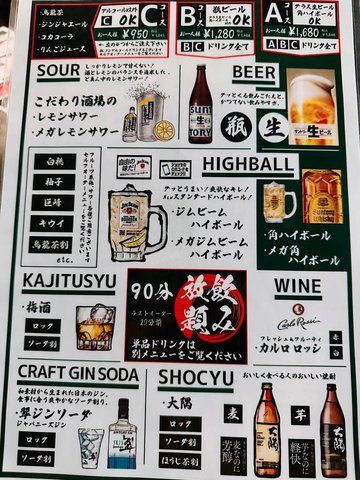 ・烏龍茶
・ジンジャエール
・コカコーラ
・りんごジュース
アルコール以外
C OK
お一人様 ¥950
Cコース
瓶ビール
C OK
お一人様 ¥1,280
BC ドリンク全て
Bコース
テラス生ビール
角ハイボール
OK
お一人様 ¥1,680
ABC ドリンク全て
Aコース
SOUR
しっかりレモンで甘くない!
こだわり酒場の
・レモンサワー
・メガレモンサワー
BEER
瓶
生
SUNTORY
サントリー生ビール
白桃
柚子
巨峰
キウイ
烏龍茶割
etc.
自由の味だ!
HIGHBALL
・ジムビーム
ハイボール
・メガジムビーム
ハイボール
・角ハイボール
・メガ角
ハイボール
Suntory
Whisky
KAJITUSYU
・梅酒
ロック
ソーダ割
90分
ラストオーダー
20分前
飲み放題
単品ドリンクは
別メニューをご覧ください
WINE
Carlo Rossi
フレッシュ&フルーティ
・カルロ ロッシ
赤
白
CRAFT GIN SODA
和素材から生まれた日本のジン。
食事に合う爽やかなソーダ割り。
・翠ジンソーダ
ジャパニーズジン
ロック
ソーダ割
翠
SHOCYU
おいしく食べる人のおいしい焼酎
・大隅
ロック
ソーダ割
ほうじ茶割
麦
麦なのに芳醇
大隅
芋
芋なのに軽快
大隅